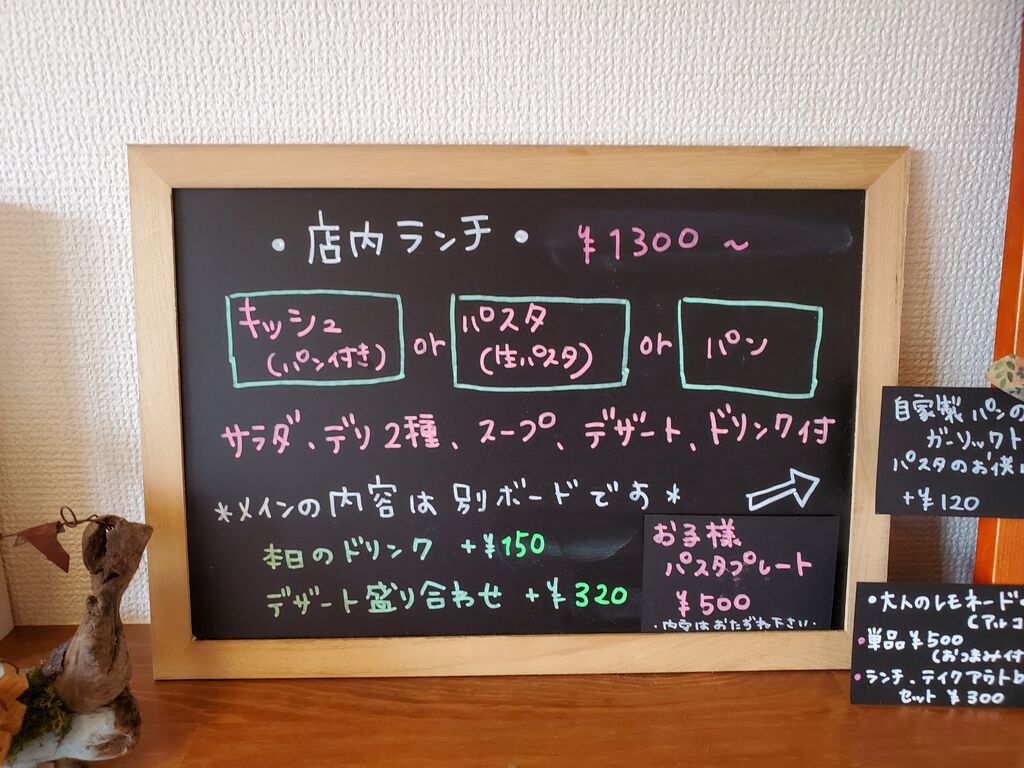 ・店内ランチ・ ¥1300～
キッシュ
(パン付き)
or
パスタ
(生パスタ)
or
パン
サラダ、デリ2種、スープ、デザート、ドリンク付
*メインの内容は別ボードです*
本日のドリンク +¥150
デザート盛り合わせ +¥320
お子様
パスタプレート
¥500
・内容はおたずね下さい・
自家製パンの
ガーリックト
パスタのお供に
+¥120
・大人のレモネード
(アルコ
・単品¥500
(おつまみ付
・ランチ、テイクアウト
セット ¥300